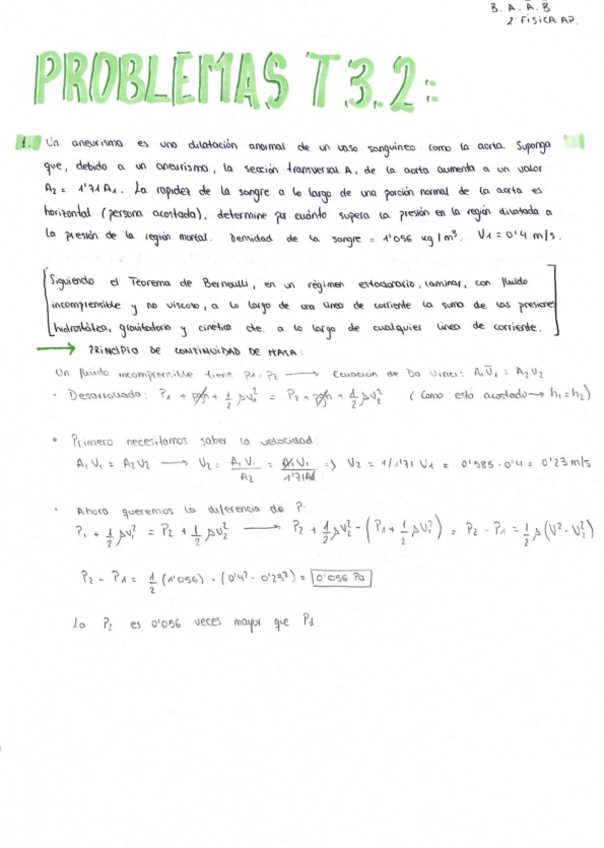 B. A. A. B
2º FISICA AP.
PROBLEMAS T 3.2:
1. Un aneurisma es una dilatación anormal de un vaso sanguíneo como la aorta. Suponga
que, debido a un aneurisma, la sección transversal A, de la aorta aumenta a un valor
A2 = 1'71 A1. La rapidez de la sangre a lo largo de una porción normal de la aorta es
horizontal (persona acostada), determine por cuánto supera la presión en la región dilatada a
la presión de la región mortal. Densidad de la sangre = 1'056 kg/m³. V1 = 0'4 m/s.
Siguiendo el Teorema de Bernoulli, en un régimen estacionario, laminar, con fluido
incomprensible y no viscoso, a lo largo de una línea de corriente la suma de las presiones
hidrostática, gravitatoria y cinética cte. a lo largo de cualquier línea de corriente.
→ PRINCIPIO DE CONTINUIDAD DE MASA:
Un fluido incomprensible tiene ρ1 = ρ2 → Ecuación de Da Vinci: A1 V1 = A2 V2
· Desarrollada: P1 + ρgh + 1/2 ρv1² = P2 + ρgh + 1/2 ρv2² (Como está acostado → h1 = h2)
· Primero necesitamos saber la velocidad:
A1 V1 = A2 V2 → V2 = A1 V1 / A2 = A1 V1 / 1'71 A1 => V2 = 1/1'71 V1 = 0'585 · 0'4 = 0'23 m/s
· Ahora queremos la diferencia de P:
P1 + 1/2 ρv1² = P2 + 1/2 ρv2² → P2 + 1/2 ρv2² - (P1 + 1/2 ρv1²) = P2 - P1 = 1/2 ρ (V² - V2²)
P2 - P1 = 1/2 (1'056) · (0'4² - 0'23²) = 0'056 Pa
La P2 es 0'056 veces mayor que P1